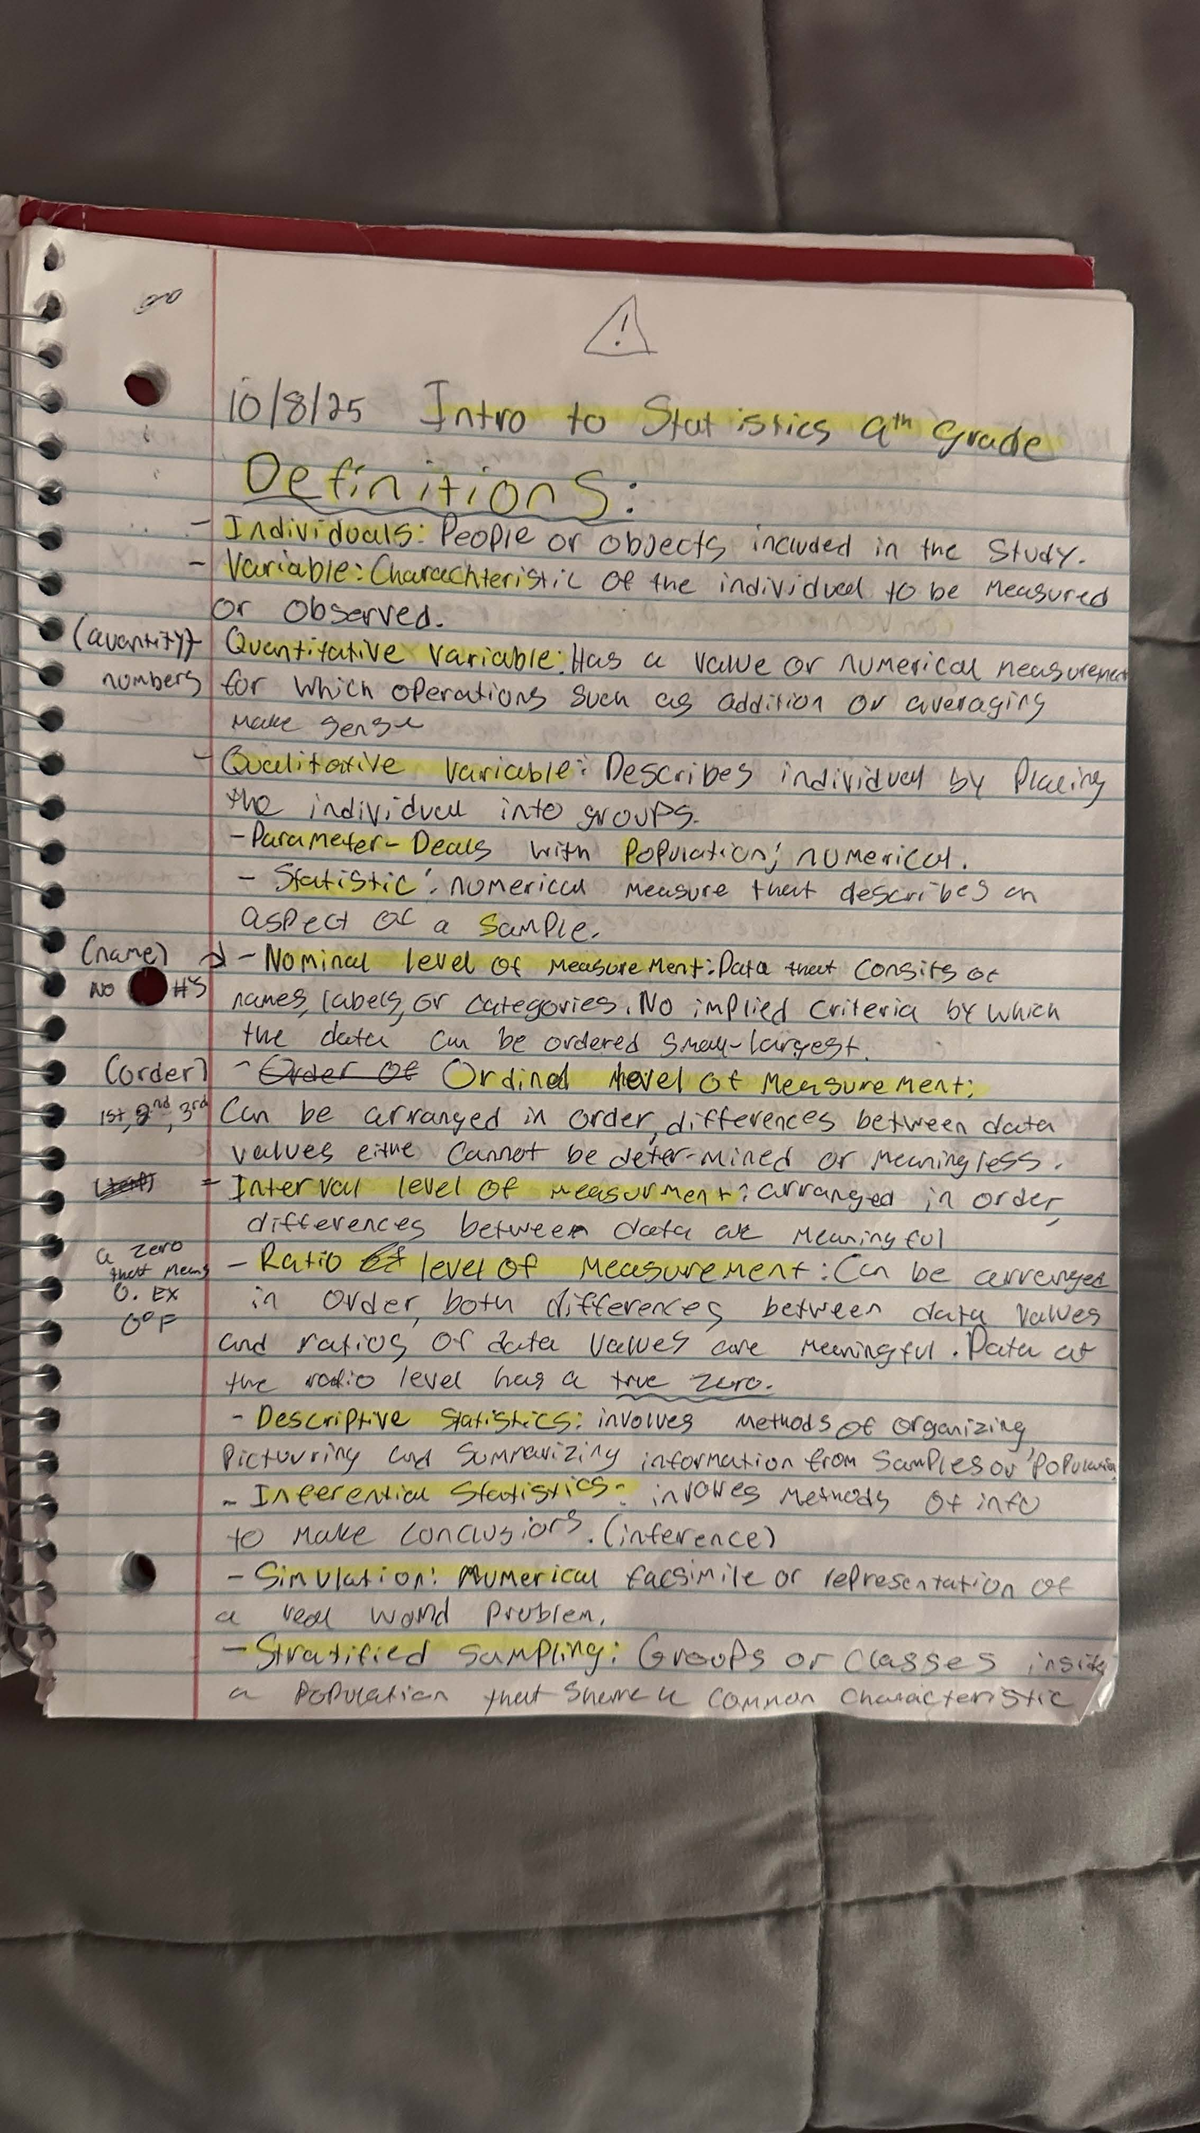 10/8/25 Intro to Statistics 9th grade
Definitions:
- Individuals: People or objects included in the study.
- Variable: Charachteristic of the individual to be measured
or observed.
(quantity) Quantitative variable: Has a value or numerical measurement
numbers for which operations such as addition or averaging
make sense
- Qualitative variable: Describes individual by placing
the individual into groups.
- Parameter - Deals with population; numerical.
- Statistic: numerical measure that describes an
aspect of a sample.
(name) → - Nominal level of measurement: Data that consits of
NO #'s names, labels, or categories. No implied criteria by which
the data can be ordered small-largest.
(order) - Order of Ordinal level of measurement:
1st, 2nd, 3rd Can be arranged in order, differences between data
values eithe cannot be deter-mined or meaningless.
- Interval level of measurment: arranged in order,
differences between data are meaningful
a zero - Ratio of level of measurement: Can be arranged
that means in order, both differences between data values
0. EX and ratios of data values are meaningful. Data at
0°F the radio level has a true zero.
- Descriptive statistics: involves methods of organizing
Pictuuring and summarizing information from samples or population
- Inferential Statistics: involves methods of info
to make conclusions. (inference)
- Simulation: Numerical facsimile or representation of
a real world problem.
- Stratified sampling: Groups or classes inside
a population that share a common characteristic